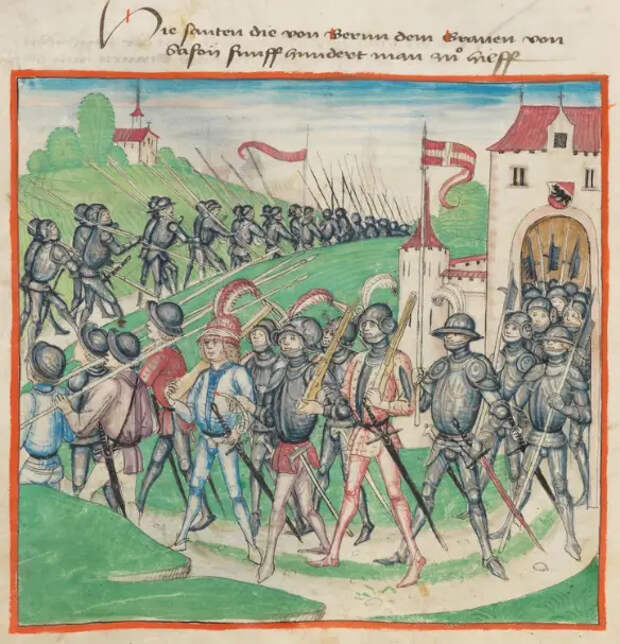 Hie santen die von Bernn dem Grauen von
Safoy funff hundert man zů hilff